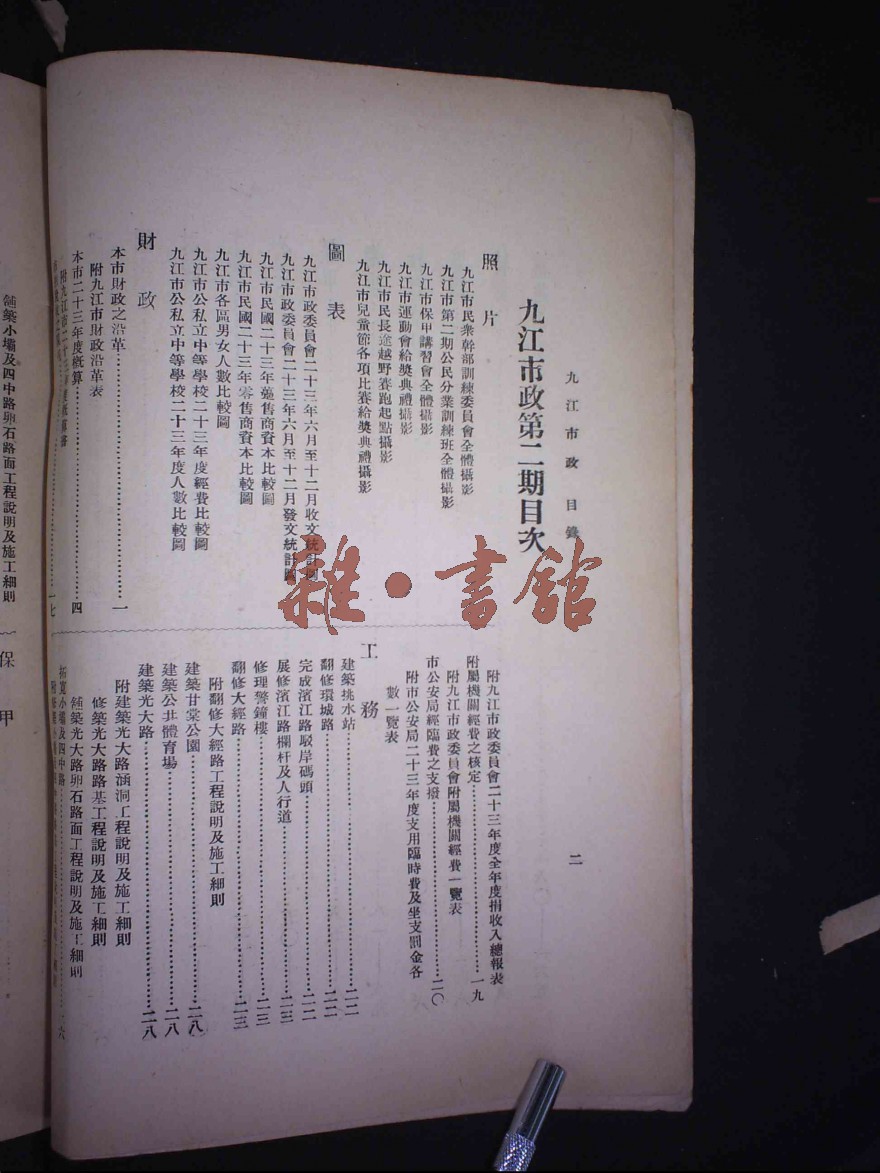 九江市政 目錄
二
九江市政第二期目次
照片
九江市民衆幹部訓練委員會全體攝影
九江市第二期公民分業訓練班全體攝影
九江市保甲講習會全體攝影
九江市運動會給獎典禮攝影
九江市民長途越野賽跑起點攝影
九江市兒童節各項比賽給獎典禮攝影
圖表
九江市政委員會二十三年六月至十二月收文統計圖
九江市政委員會二十三年六月至十二月發文統計圖
九江市民國二十三年躉售商資本比較圖
九江市民國二十三年零售商資本比較圖
九江市各區男女人數比較圖
九江市公私立中等學校二十三年度經費比較圖
九江市公私立中等學校二十三年度人數比較圖
財政
本市財政之沿革……一
附九江市財政沿革表
本市二十三年度概算……四
附九江市二十三年度概算書
一七
附九江市政委員會二十三年度全年度捐收入總報表
附屬機關經費之核定……一九
附九江市政委員會附屬機關經費一覽表
市公安局經臨費之支撥……二〇
附市公安局二十三年度支用臨時費及坐支罰金各
數一覽表
工務
建築挑水站……二二
翻修環城路……二二
完成濱江路駁岸碼頭……二二
展修濱江路欄杆及人行道……二三
修理警鐘樓……二三
翻修大經路……二三
附翻修大經路工程說明及施工細則
建築甘棠公園……二八
建築公共體育場……二八
建築光大路……二八
附建築光大路涵洞工程說明及施工細則
修築光大路路基工程說明及施工細則
舖築光大路卵石路面工程說明及施工細則
拓寬小壩及四中路……六
舖築小壩及四中路卵石路面工程說明及施工細則
保甲
雜·書館